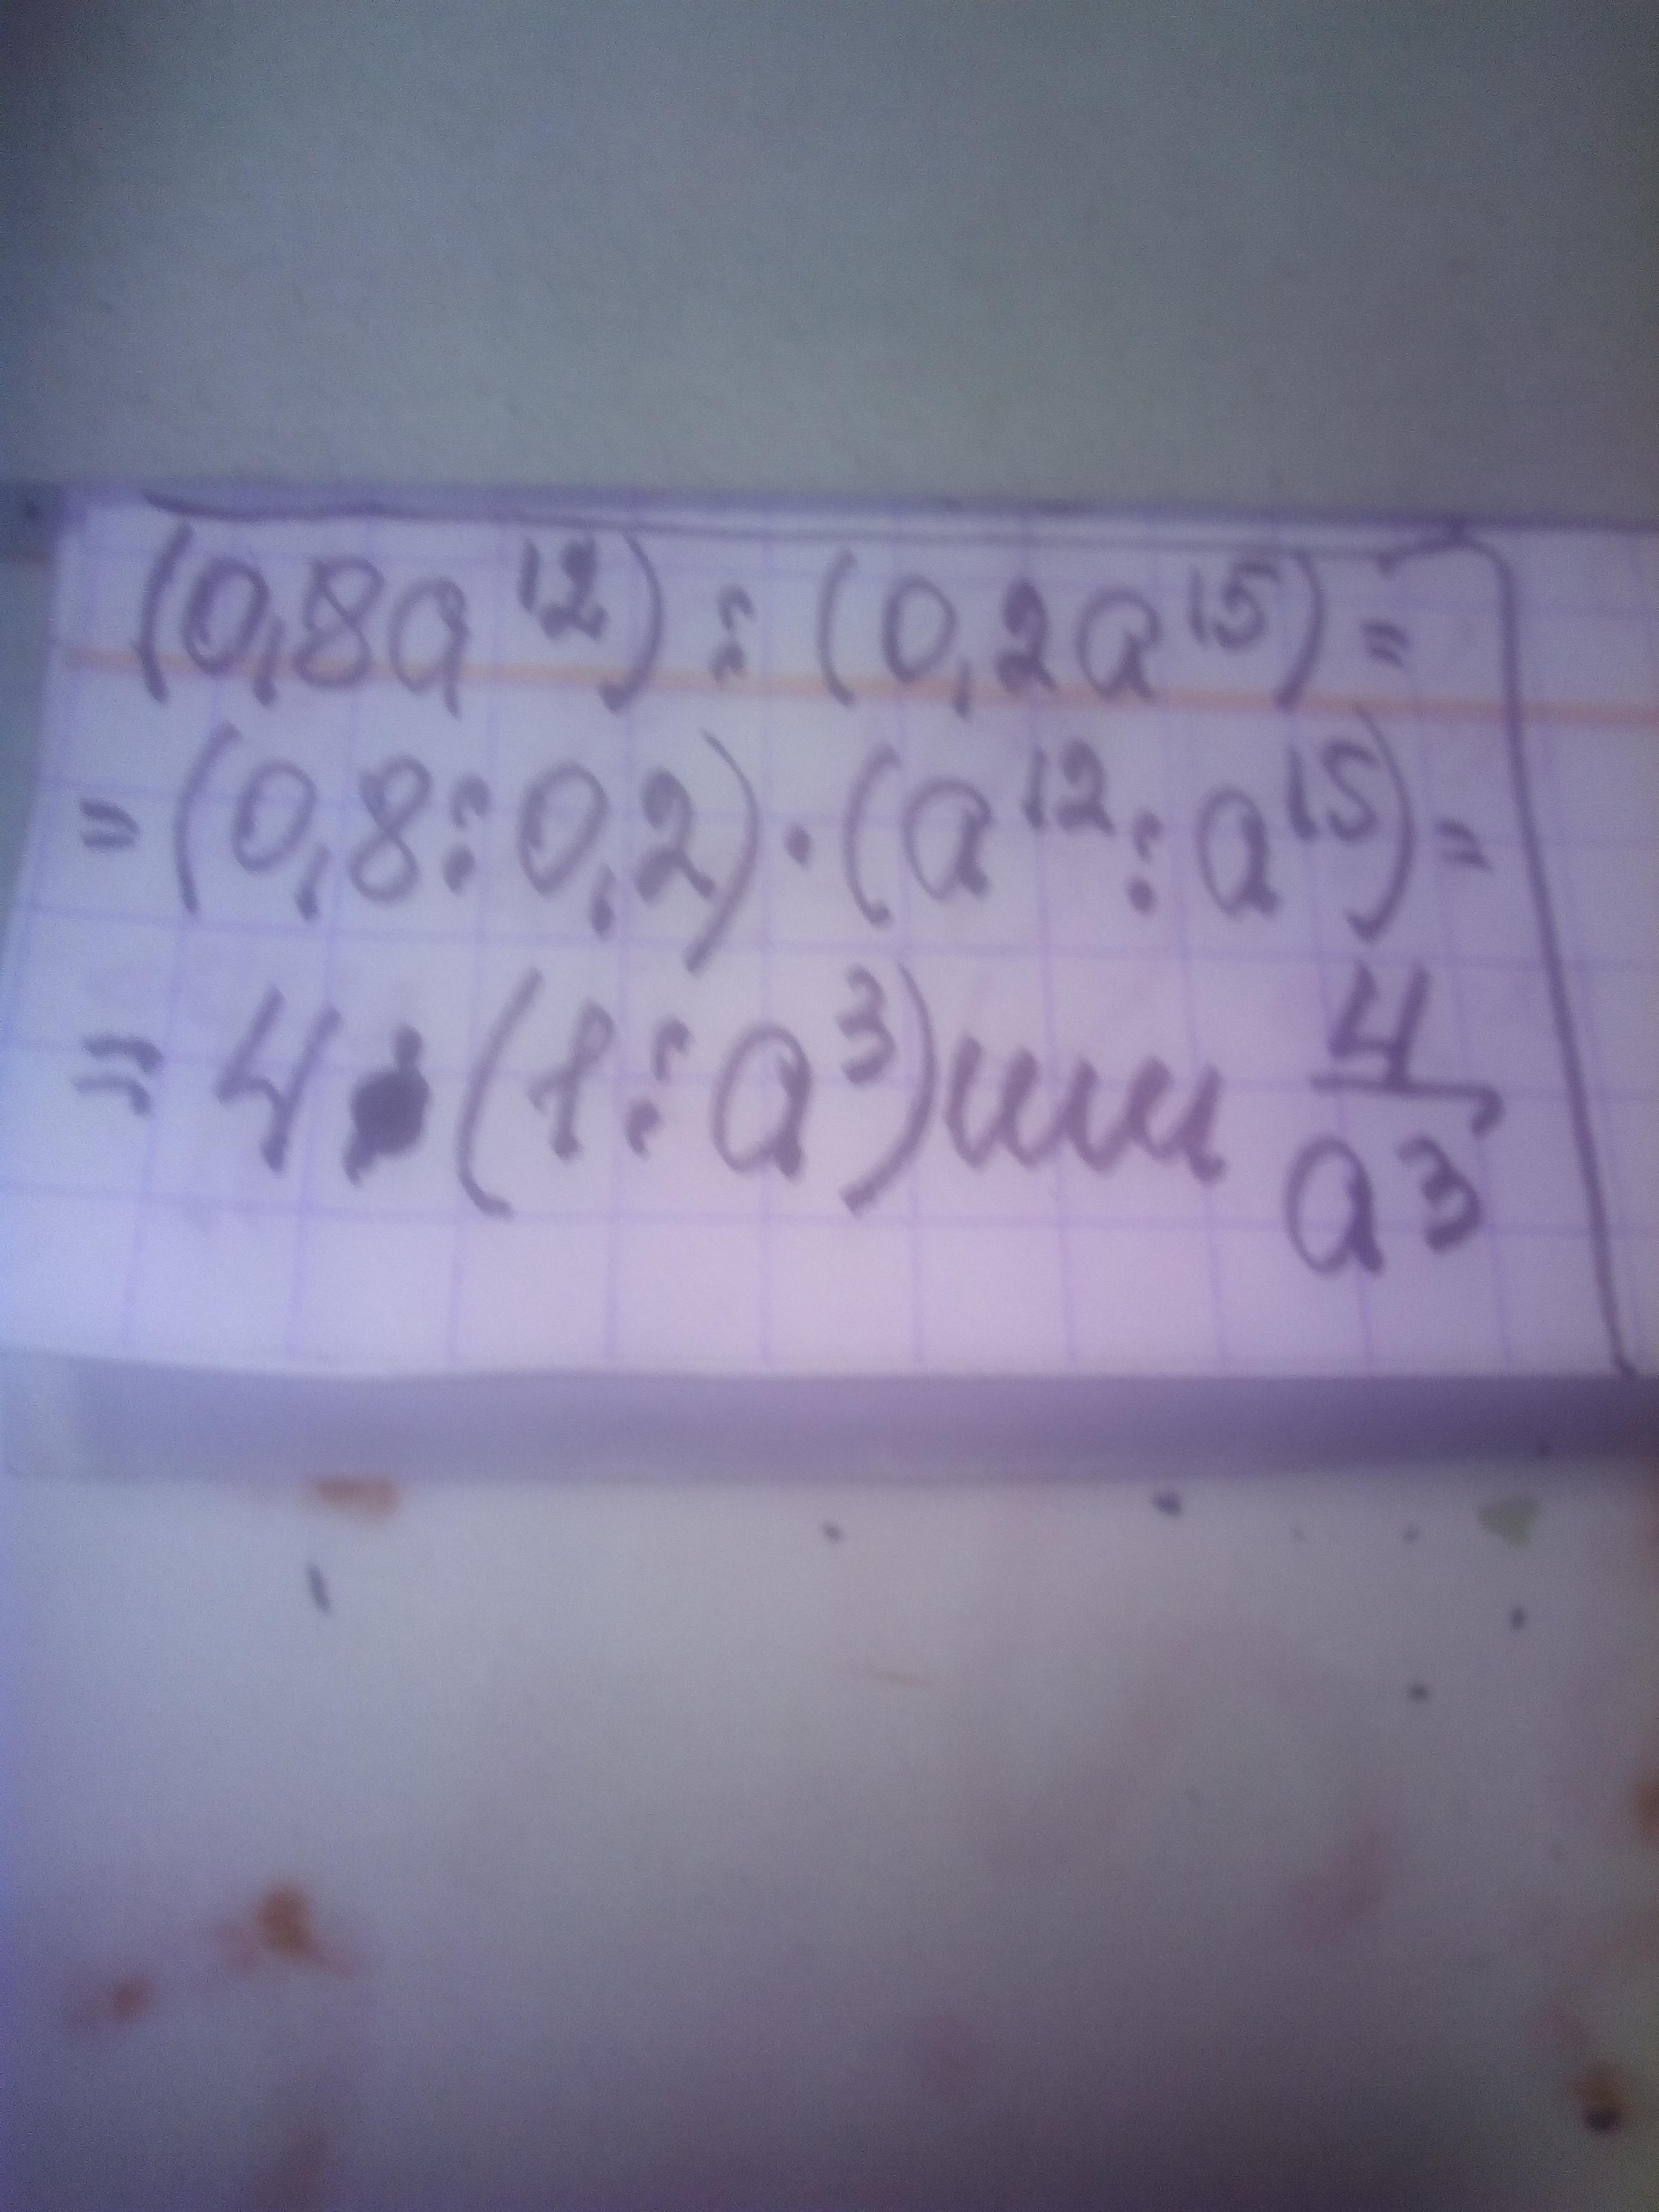 (0,8a¹²) : (0,2a¹⁵) =
= (0,8 : 0,2) · (a¹² : a¹⁵) =
= 4 · (1 : a³) или 4/a³